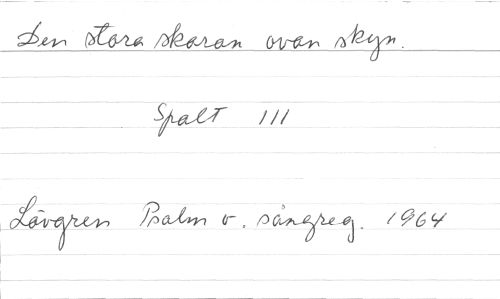 Den stora skaran ovan skyn.
Spalt 111
Lövgren Psalm o. sångreg. 1964